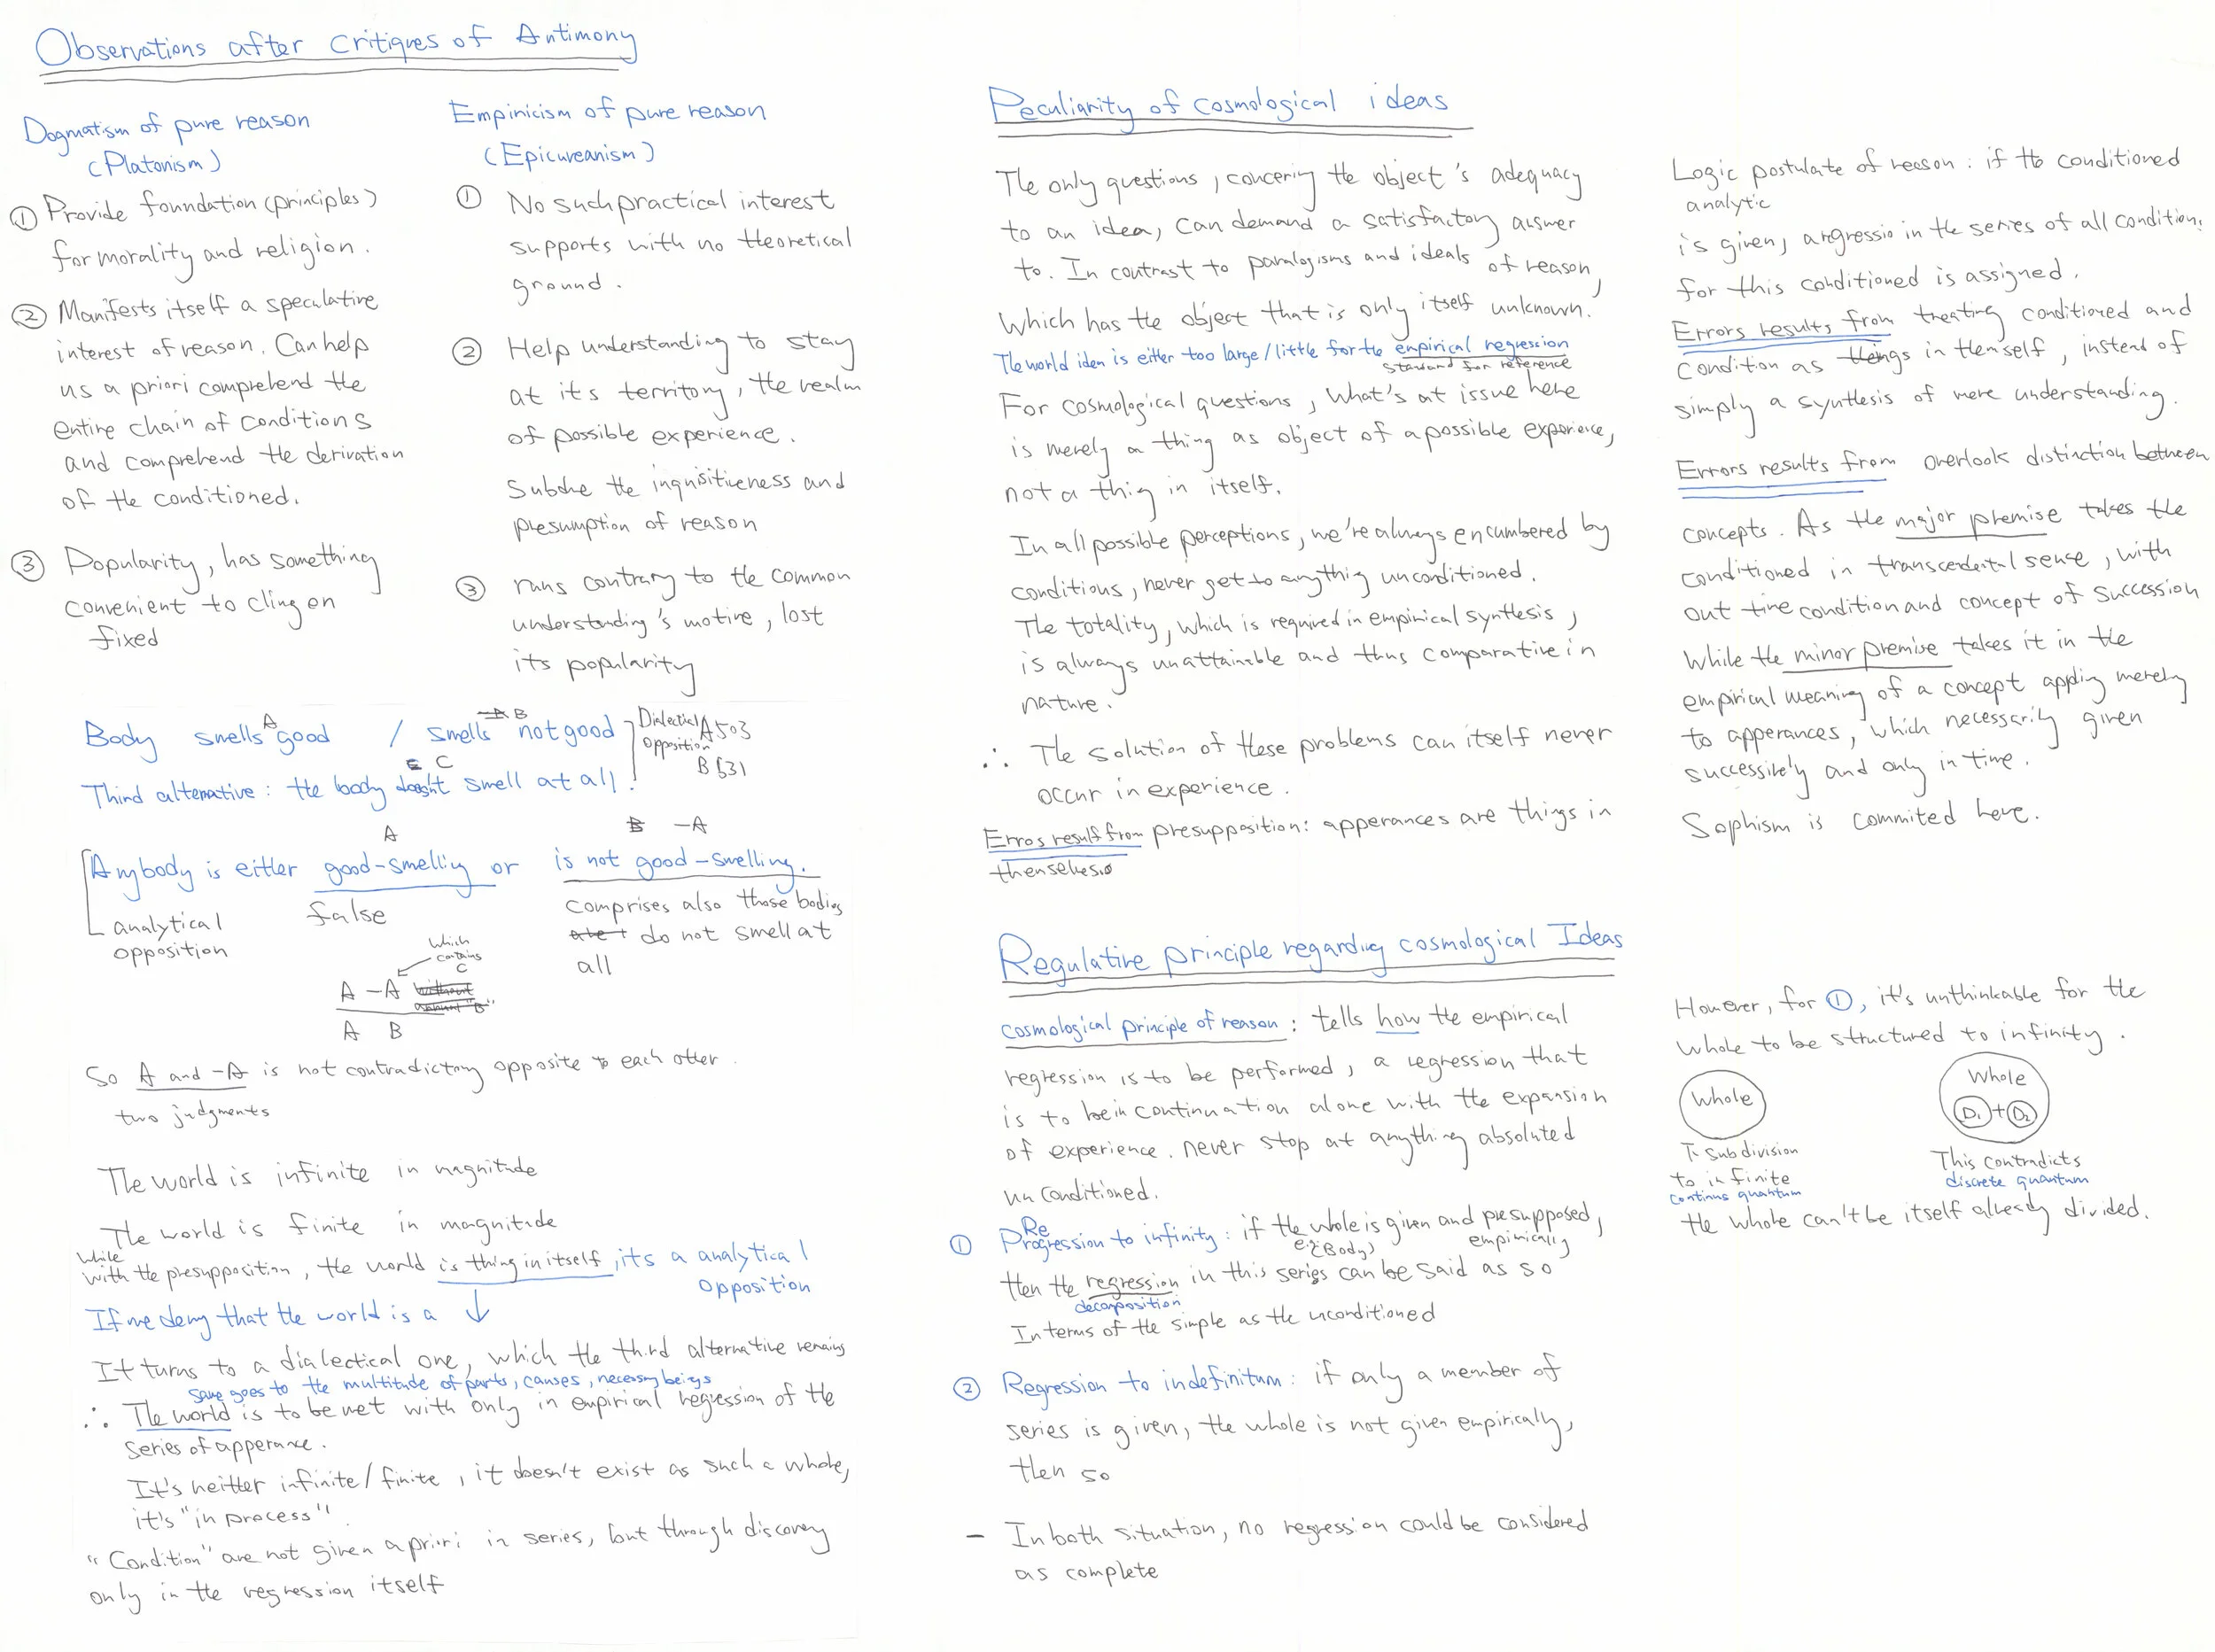 Observations after critiques of Antimony
Dogmatism of pure reason
(Platonism)
① Provide foundation (principles)
for morality and religion.
② Manifests itself a speculative
interest of reason. Can help
us a priori comprehend the
entire chain of conditions
and comprehend the derivation
of the conditioned.
③ Popularity, has something
convenient to cling on
fixed
Empiricism of pure reason
(Epicureanism)
① No such practical interest
supports with no theoretical
ground.
② Help understanding to stay
at its territory, the realm
of possible experience.
Subdue the inquisitiveness and
presumption of reason
③ runs contrary to the common
understanding's motive, lost
its popularity
A
B
Body smells good / smells not good
Dialectical
Opposition
A503
B531
C
Third alternative: the body doesn't smell at all
A
-A
Anybody is either good-smelling or is not good-smelling.
analytical
opposition
false
comprises also those bodies
do not smell at
all
which
contains
C
A -A
A B
So A and -A is not contradictory opposite to each other.
two judgments
The world is infinite in magnitude
The world is finite in magnitude
while
with the presupposition, the world is thing in itself, its a analytical
opposition
If we deny that the world is a ↓
It turns to a dialectical one, which the third alternative remains
same goes to the multitude of parts, causes, necessary beings
∴ The world is to be met with only in empirical regression of the
series of apperance.
It's neither infinite/finite, it doesn't exist as such a whole,
it's "in process".
"Condition" are not given a priori in series, but through discovery
only in the regression itself
Peculiarity of cosmological ideas
The only questions, concering the object's adequacy
to an idea, can demand a satisfactory answer
to. In contrast to paralogisms and ideals of reason,
which has the object that is only itself unknown.
The world idea is either too large/little for the empirical regression
standard for reference
For cosmological questions, what's at issue here
is merely a thing as object of a possible experience,
not a thing in itself.
In all possible perceptions, we're always encumbered by
conditions, never get to anything unconditioned.
The totality, which is required in empirical synthesis,
is always unattainable and thus comparative in
nature.
∴ The solution of these problems can itself never
occur in experience.
Erros result from presupposition: apperances are things in
themselves.
Logic postulate of reason: if the conditioned
analytic
is given, a regressio in the series of all conditions
for this conditioned is assigned.
Errors results from treating conditioned and
condition as things in themself, instead of
simply a synthesis of mere understanding.
Errors results from overlook distinction between
concepts. As the major premise takes the
conditioned in transcendental sense, with
out time condition and concept of succession
While the minor premise takes it in the
empirical meaning of a concept applying merely
to apperances, which necessarily given
successively and only in time.
Sophism is commited here.
Regulative principle regarding cosmological Ideas
cosmological principle of reason: tells how the empirical
regression is to be performed, a regression that
is to be in continuation alone with the expansion
of experience. never stop at anything absoluted
unconditioned.
Re
① Progression to infinity: if the whole is given and presupposed,
e.g(Body)
empirically
then the regression in this series can be said as so
decomposition
In terms of the simple as the unconditioned
② Regression to indefinitum: if only a member of
series is given, the whole is not given empirically,
then so
- In both situation, no regression could be considered
as complete
However, for ①, it's unthinkable for the
whole to be structured to infinity.
Whole
Subdivision
to infinite
continus quantum
Whole
D1 + D2
This contradicts
discrete quantum
the whole can't be itself already divided.